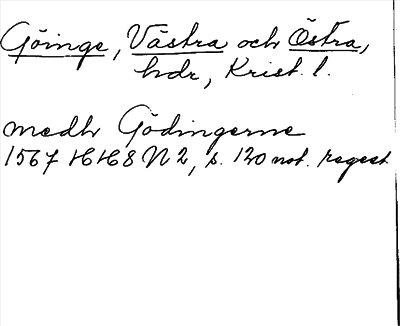 Göinge, Västra och Östra,
hdr, Krist. l.
medh Gödingerne
1567 HH8 N2, s. 120 not. regest